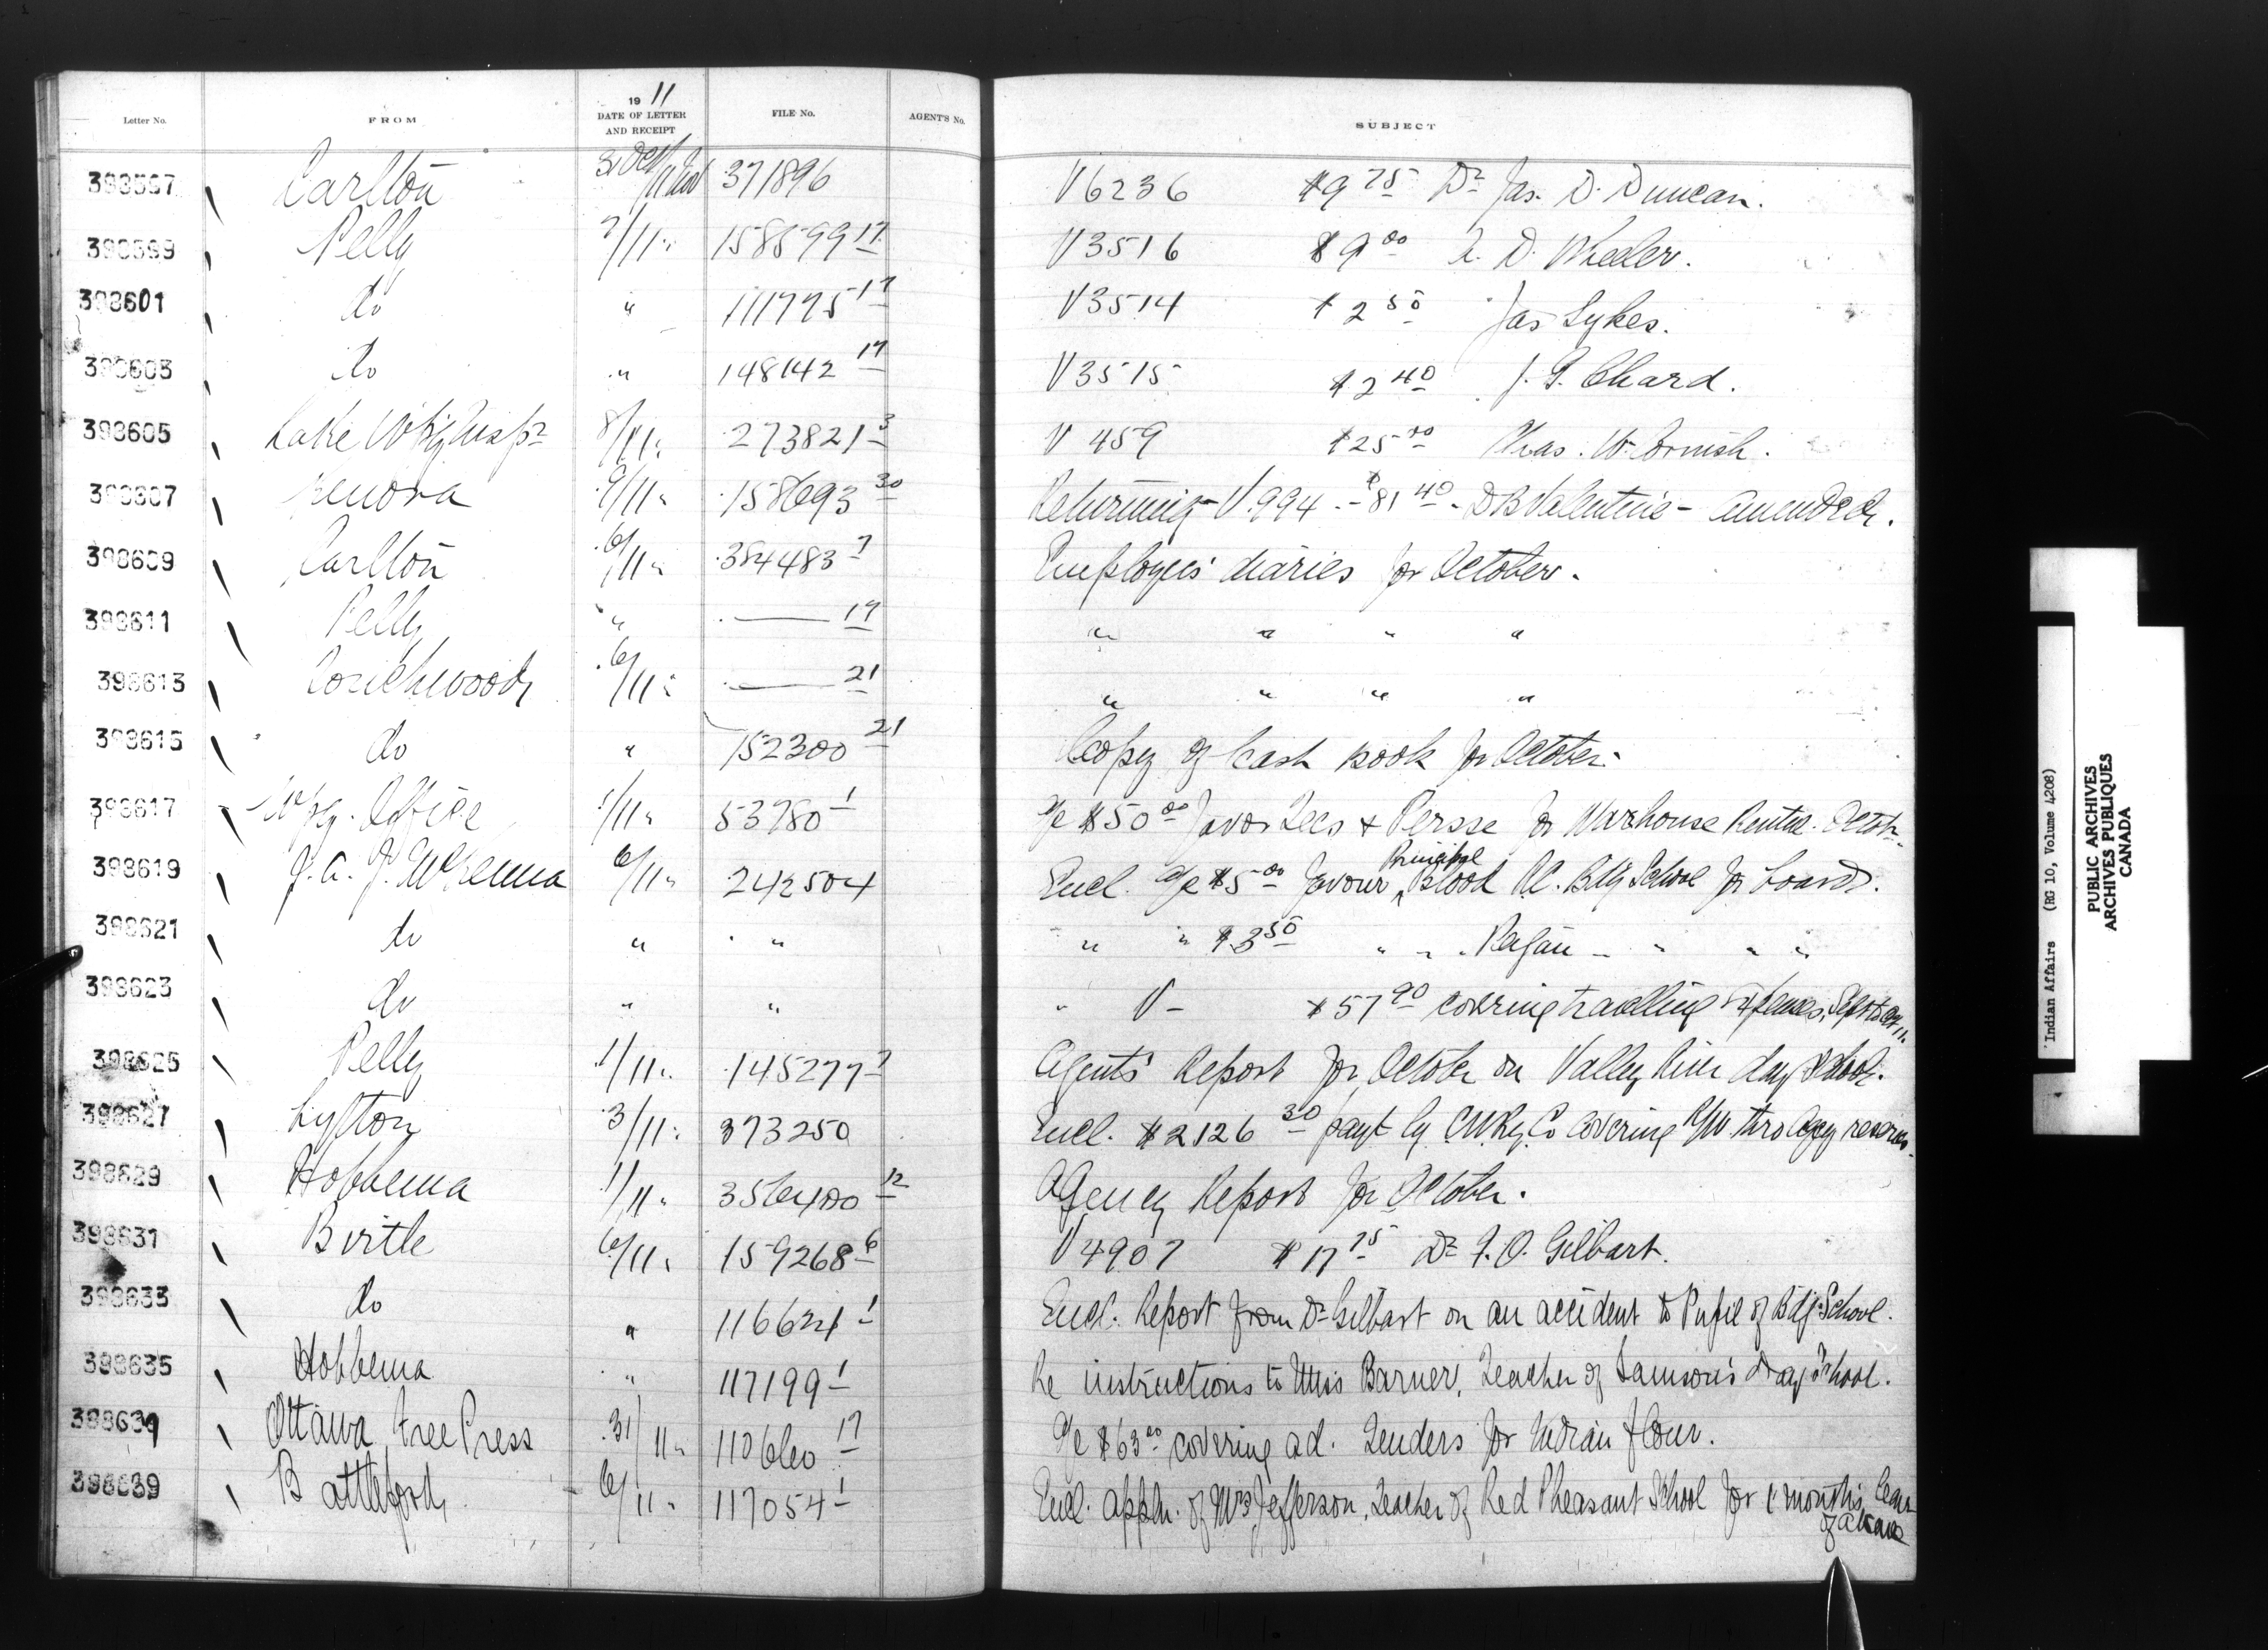 1911
Letter No. FROM DATE OF LETTER AND RECEIPT FILE No. AGENT'S No. SUBJECT
398597 Carlton 31 Oct/11 Nov 371896 V6236 $9 75 Dr Jas. D. Duncan.
398599 Pelly 7/11 " 158599 17 V3516 $9 00 A. D. Wheeler.
398601 do " 111775 17 V3514 $2 50 Jas Sykes.
398603 do " 148142 17 V3515 $2 40 J. G. Chard.
398605 Lake Wpg Inspr 8/11 " 273821 3 V 459 $25 Chas. W. Cornish.
398607 Kenora 9/11 " 158693 30 Returning V.994 - $81 40 - D B Valentine - amended.
398609 Carlton 6/11 " 384483 7 Employees' diaries for October.
398611 Pelly " — 17 " " " "
398613 Touchwood 6/11 " — 21 " " " "
398615 do " 152300 21 Copy of Cash Book for October.
398617 Wpg. Office 1/11 " 53980 1 a/c $50 00 favor Lees & Persse for Warehouse Rental. Octobr.
398619 J. A. J. McKenna 6/11 " 242504 Encl. a/c $5 00 favour Principal Blood R.C. Bdg School for board.
398621 do " " " " $3 50 " " Peigan - " " "
398623 do " " " V - $57 90 covering travelling expenses, Sept to Oct
398625 Pelly 1/11 " 145277 7 Agents' Report for October on Valley River day School.
398627 Lytton 3/11 " 373250 Encl. $2126 30 payt by C.N.Ry. Co covering R/W thro Agcy reserves.
398629 Hobbema 1/11 " 356400 12 Agency Report for October.
398631 Birtle 6/11 " 159268 6 V4907 $17 75 Dr F. O. Gilbart.
398633 do " 116621 1 Encl. Report from Dr Gilbart on an accident to Pupil of Bdg School.
398635 Hobbema " 117199 1 Re instructions to Miss Barner, Teacher of Samson's day School.
398639 Ottawa Free Press 31/11 " 110660 17 a/c $63 00 covering ad. Tenders for Indian flour.
398639 Battleford 6/11 " 117054 1 Encl. appln. of Mrs Jefferson, Teacher of Red Pheasant School for months leave
of absence
Indian Affairs (RG 10, Volume 4208)
PUBLIC ARCHIVES
ARCHIVES PUBLIQUES
CANADA